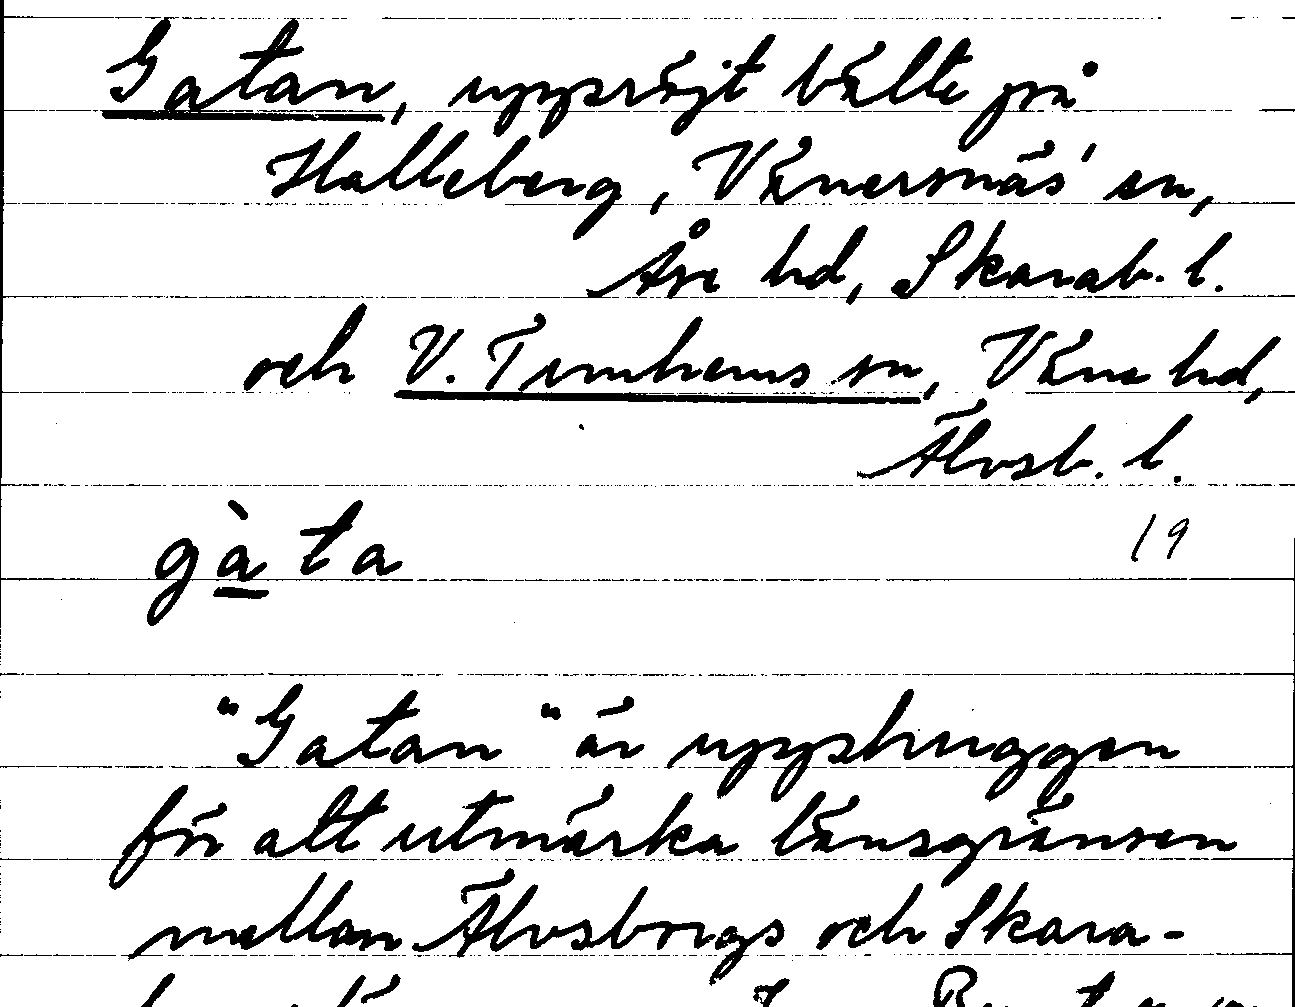 Gatan, uppröjt bälte på
Halleberg, Vänersnäs' sn,
Åse hd, Skarab. l.
och V. Tunhems sn, Väne hd,
Älvsb. l.
gàta
19
"Gatan" är upphuggen
för att utmärka länsgränsen
mellan Älvsborgs och Skara-